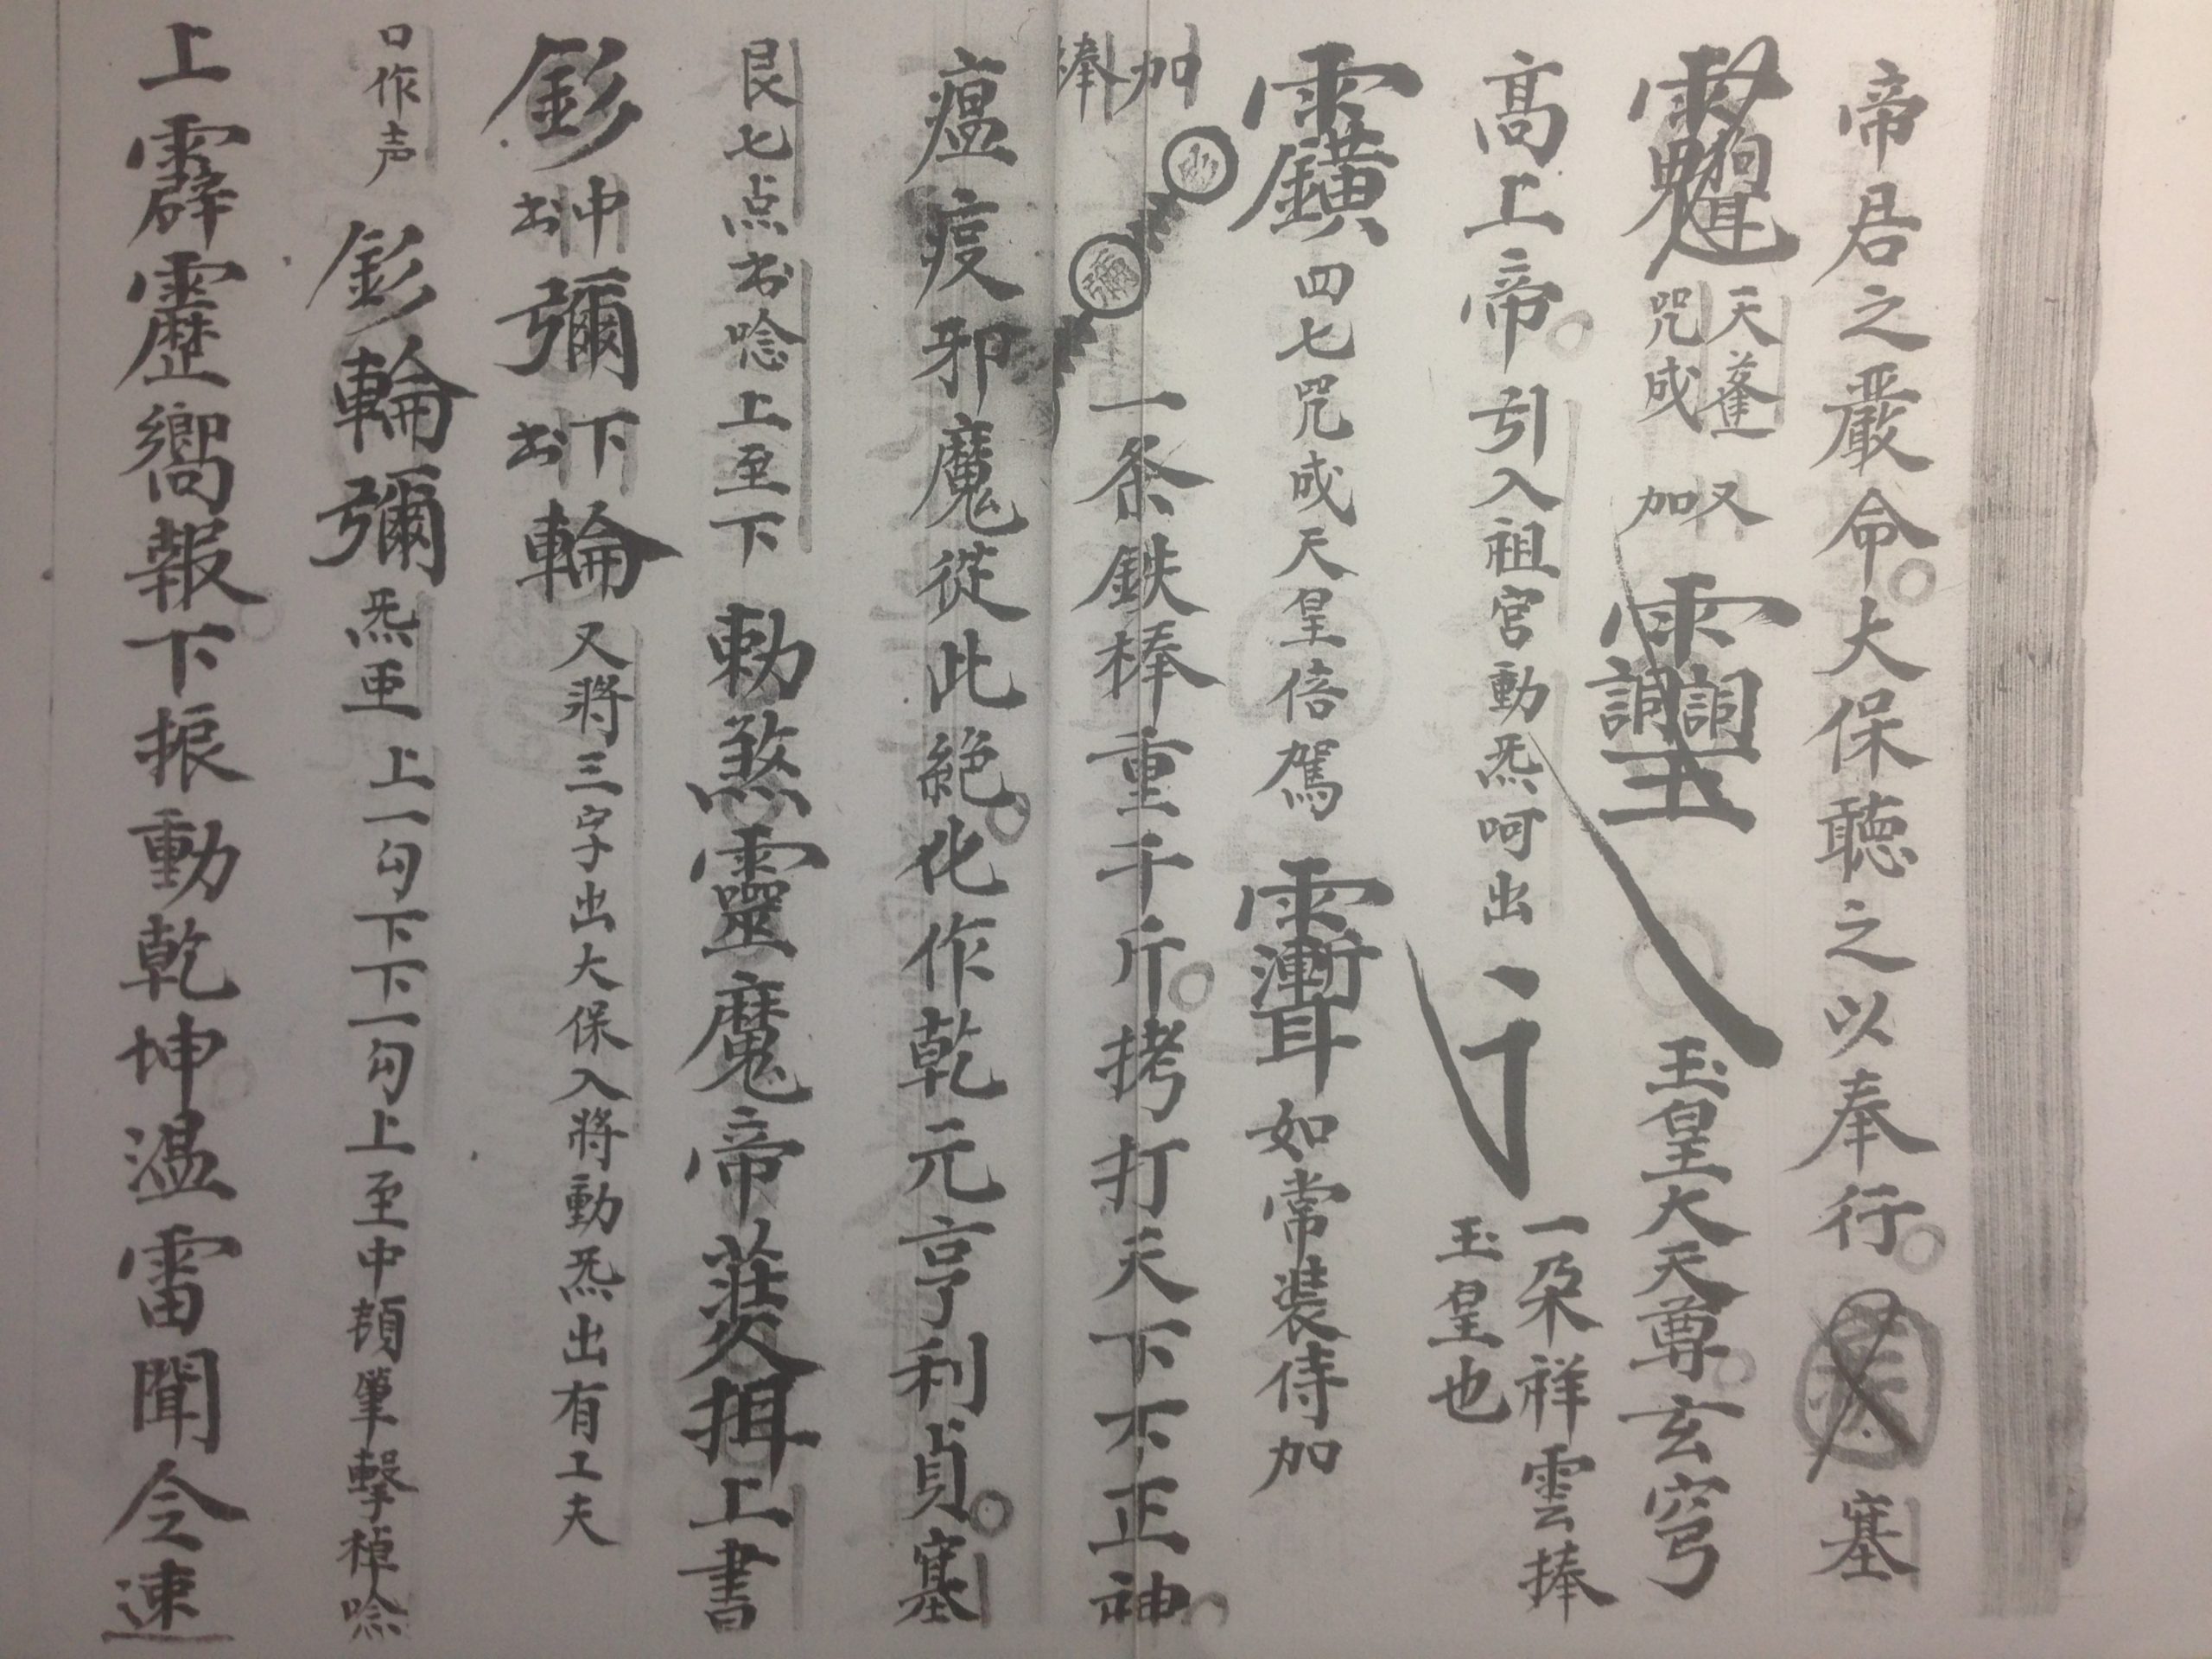 帝君之嚴命大保聽之以奉行塞
天蓬咒成又加玉皇大天尊玄穹
高上帝引入祖宫動炁呵出一朵祥雲捧玉皇也
四七咒成天皇倍駕如常装侍加
加棒一条鉄棒重千斤拷打天下不正神
瘟疫邪魔從此絶化作乾元亨利貞塞
艮七点书唸上至下勅煞靈魔帝上書
中书彌下书輪又將三字出大保入將動炁出有工夫
口作声輪彌炁亜上一勾下下一勾上至中頓筆擊棹唸
上霹靂嚮報下振動乾坤温雷聞令速